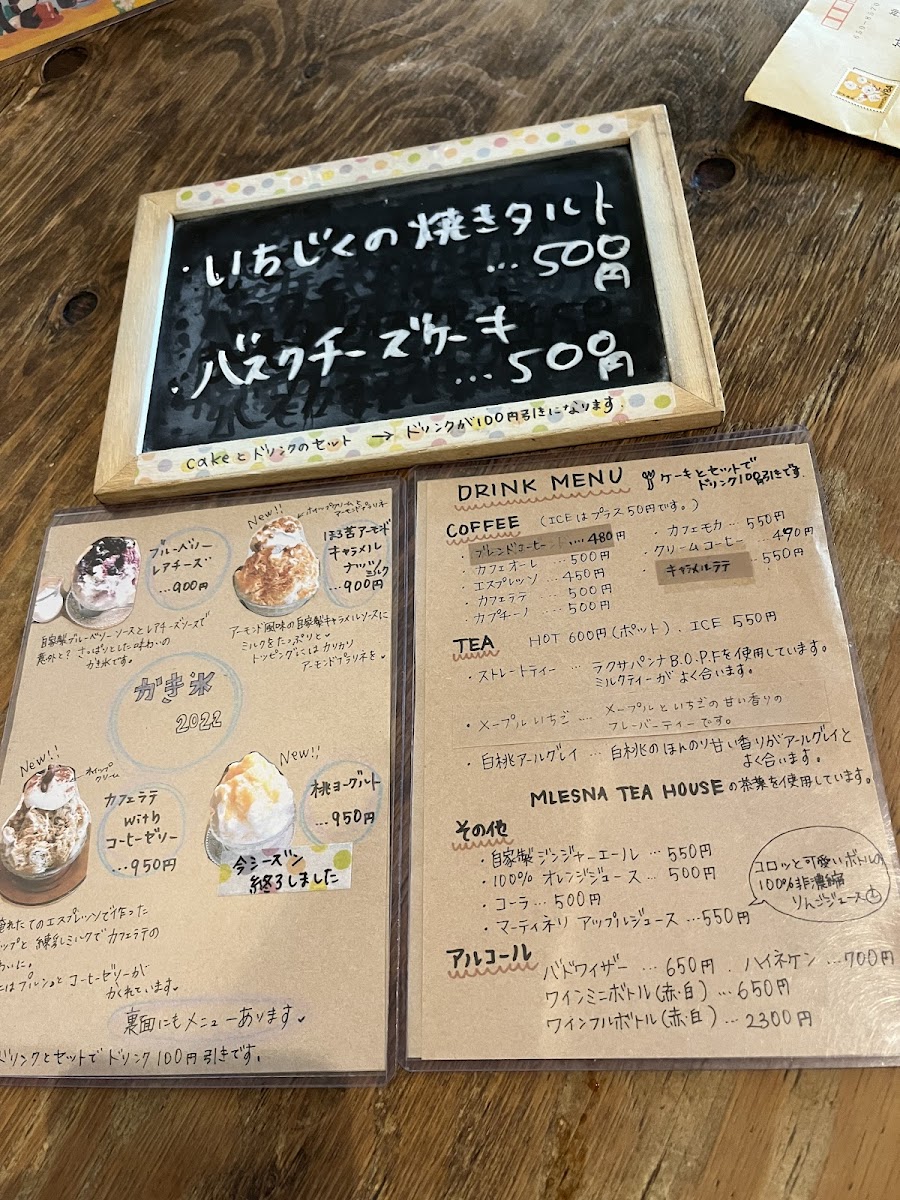 ・いちじくの焼きタルト
…500円
・バスクチーズケーキ
…500円
cakeとドリンクのセット → ドリンクが100円引きになります。
New!!
ブルーベリー
レアチーズ
…900円
自家製ブルーベリーソースとレアチーズソースで
意外と？さっぱりとした味わいの
かき氷です。
New!!
ホイップクリームと
アーモンドプラリネ
ほろ苦アーモンド
キャラメル
ナッツ
ミルク
…900円
アーモンド風味の自家製キャラメルソースに
ミルクをたっぷりと
トッピングにはカリカリ
アーモンドプラリネを
かき氷
2022
New!!
ホイップ
クリーム
カフェラテ
with
コーヒーゼリー
…950円
New!!
桃ヨーグルト
…950円
今シーズン
終了しました
淹れたてのエスプレッソで作った
ップと練乳ミルクでカフェラテの
わいに。
にはプルンっとコーヒーゼリーが
かくれています。
裏面にもメニューあります
ドリンクとセットでドリンク100円引きです。
DRINK MENU
ケーキとセットで
ドリンク100円引きです。
COFFEE （ICEはプラス50円です。）
・ブレンドコーヒー …480円
・カフェオーレ … 500円
・エスプレッソ … 450円
・カフェラテ … 500円
・カプチーノ … 500円
・カフェモカ … 550円
・クリームコーヒー … 490円
キャラメルラテ … 550円
TEA HOT 600円（ポット）. ICE 550円
・ストレートティー … ラクサパーナB.O.P.Fを使用しています。
ミルクティーがよく合います。
・メープルいちご … メープルといちごの甘い香りの
フレーバーティーです。
・白桃アールグレイ … 白桃のほんのり甘い香りがアールグレイと
よく合います。
MLESNA TEA HOUSEの茶葉を使用しています。
その他
・自家製ジンジャーエール … 550円
・100% オレンジジュース … 500円
・コーラ … 500円
・マーティネリ アップルジュース … 550円
コロッと可愛いボトルの
100%非濃縮
りんごジュース
アルコール
バドワイザー … 650円 . ハイネケン … 700円
ワインミニボトル（赤・白）… 650円
ワインフルボトル（赤・白）… 2300円